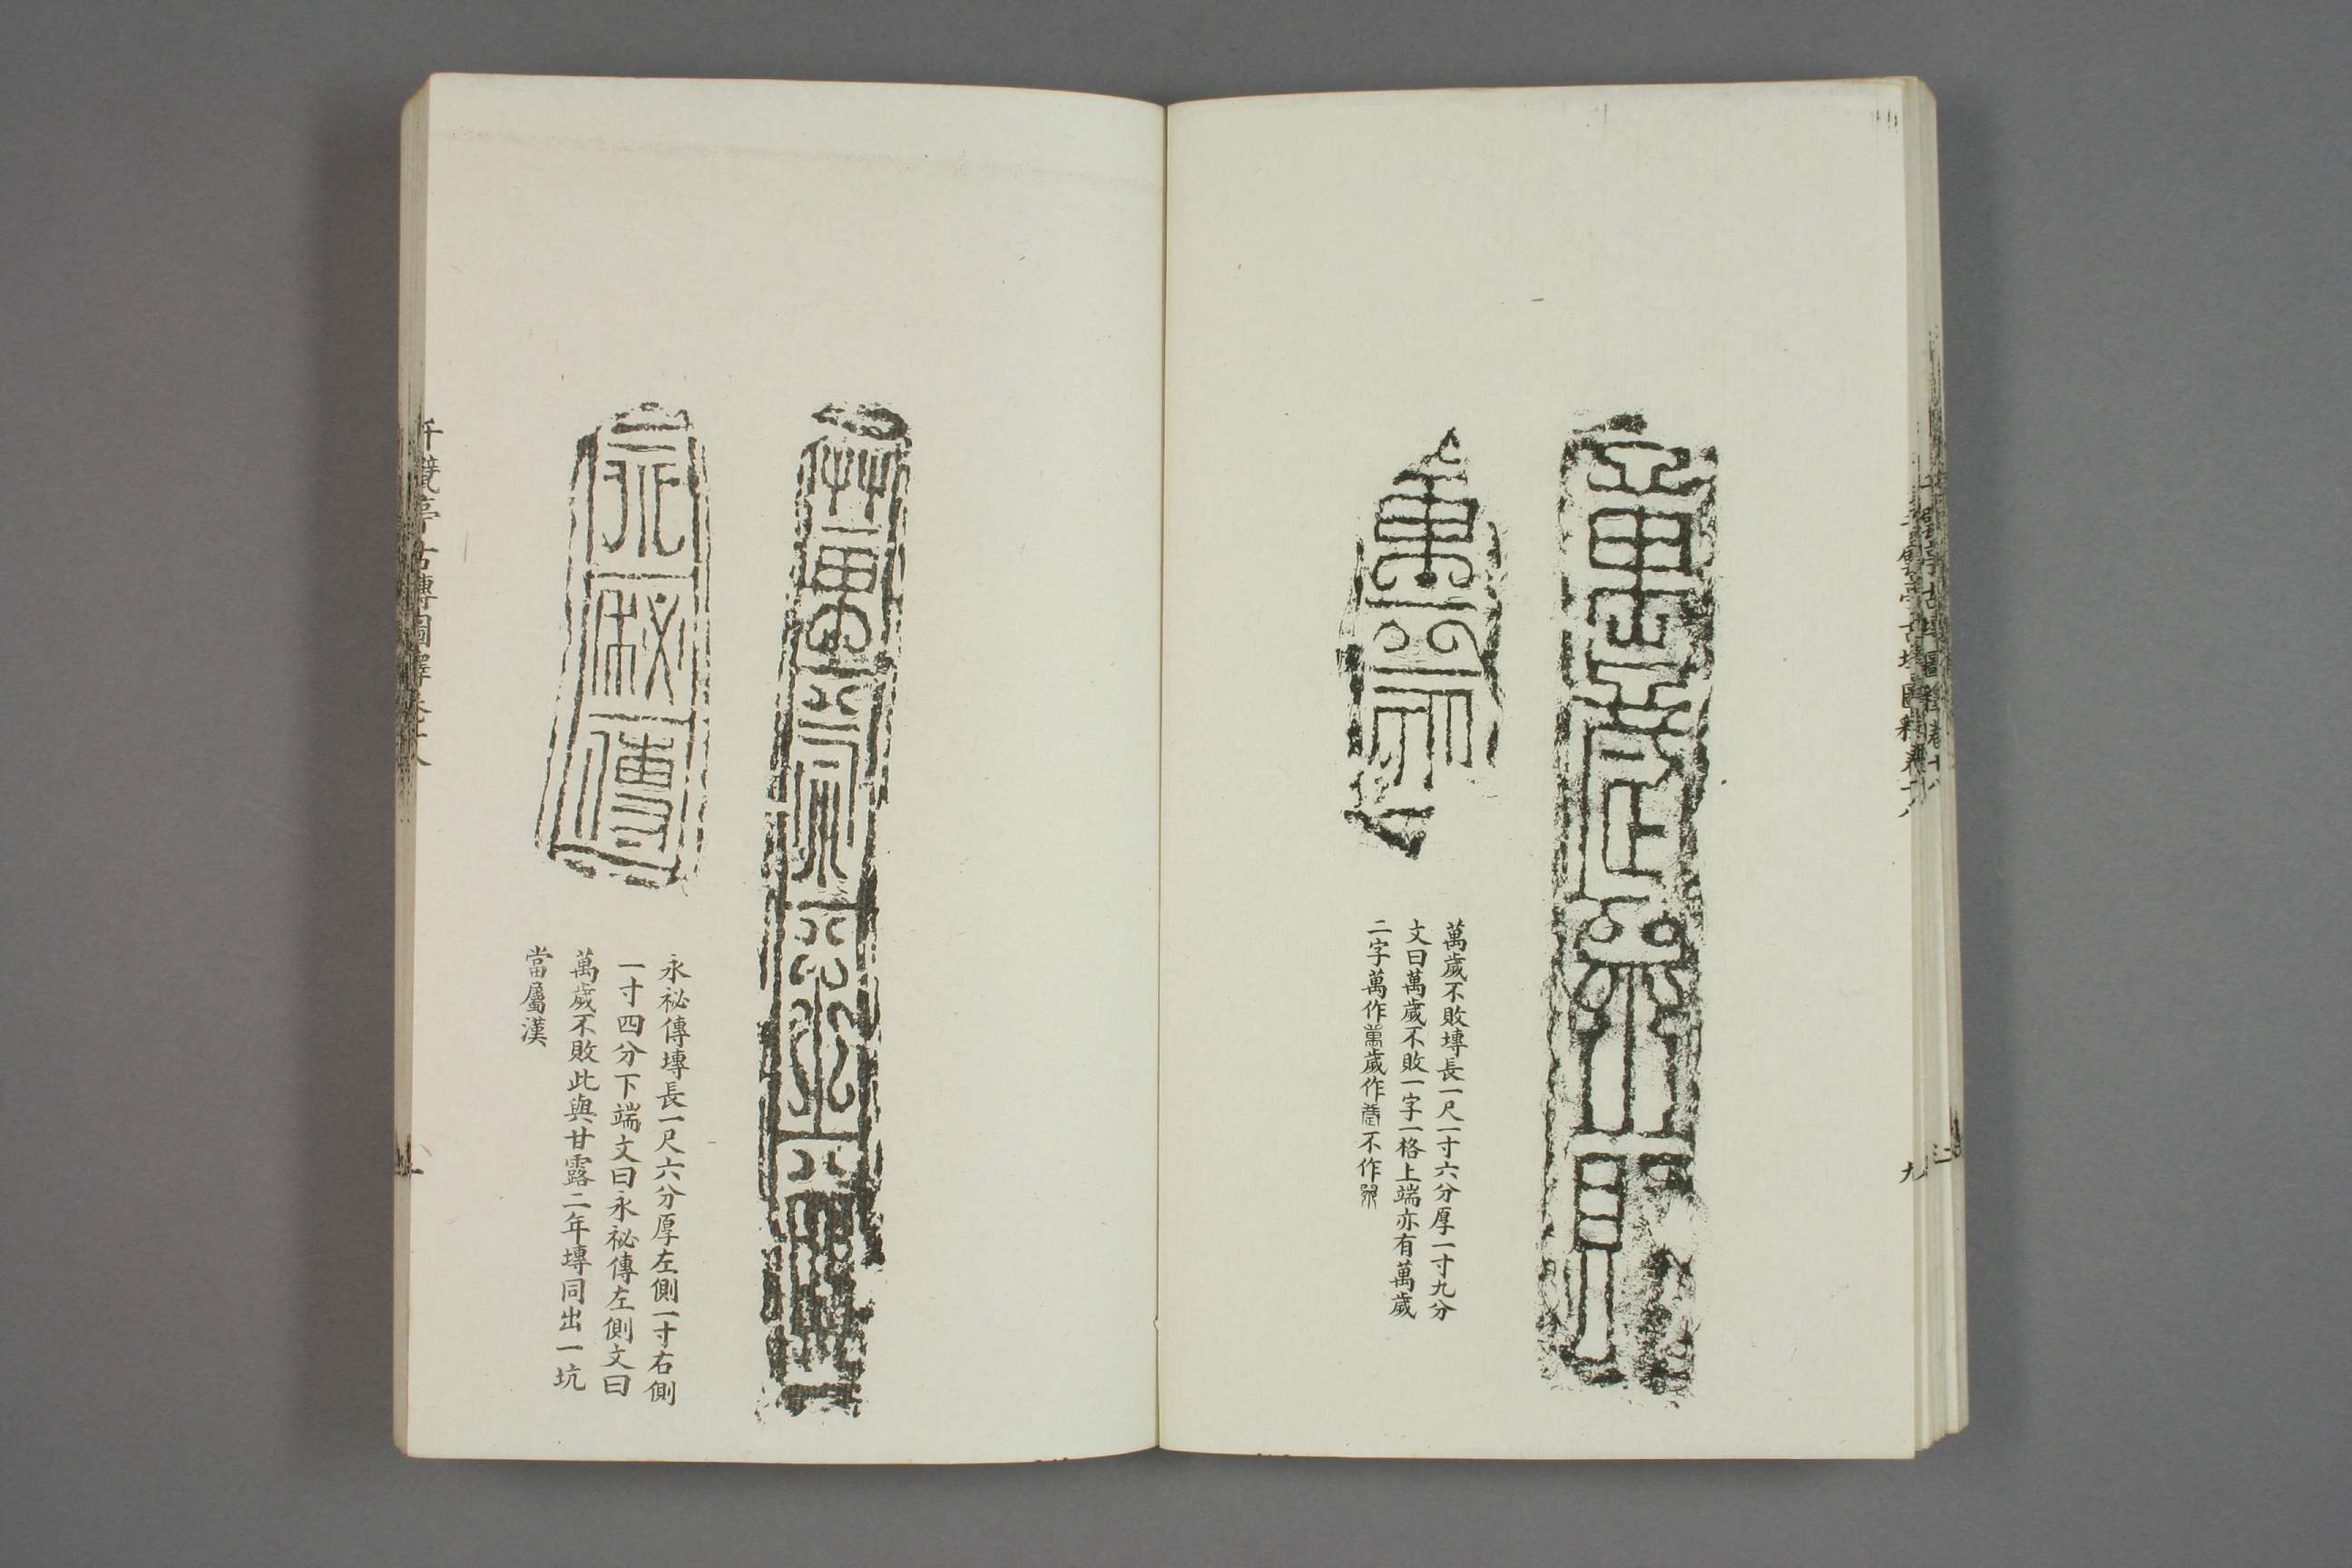 萬歲不敗
萬歲
萬歲不敗塼長一尺一寸六分厚一寸九分
文曰萬歲不敗一字一格上端亦有萬歲
二字萬作萬歲作歲不作不
萬歲不敗
永祕傳
永祕傳塼長一尺六分厚左側一寸右側
一寸四分下端文曰永祕傳左側文曰
萬歲不敗此與甘露二年塼同出一坑
當屬漢
千甓亭古塼圖釋卷十八
九